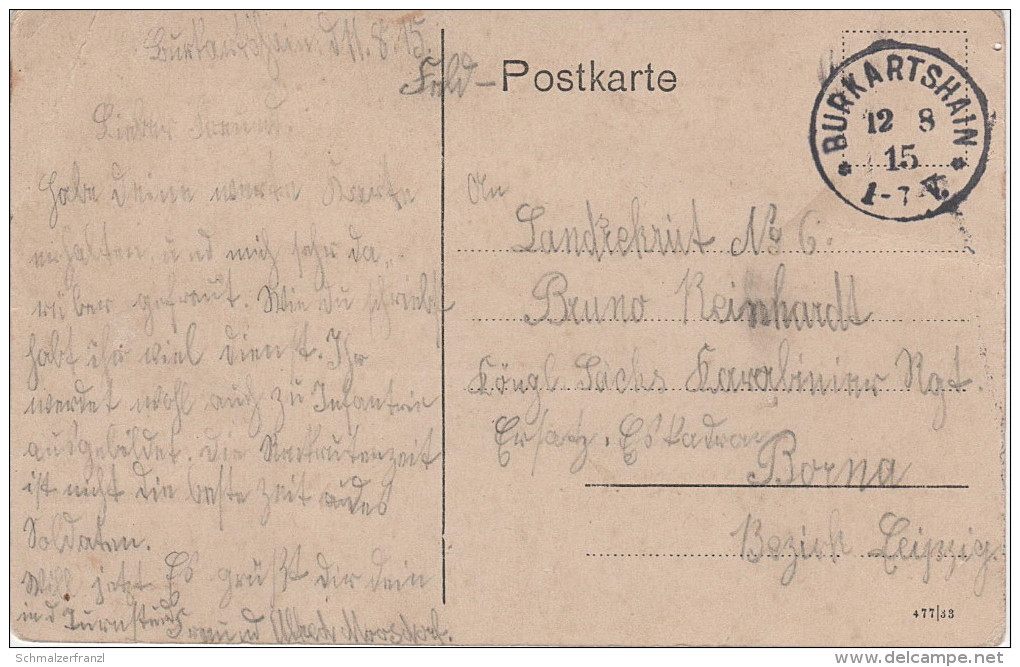 Burkartshain, d 11.8.15.
Feld-Postkarte
BURKARTSHAIN
12 8
15
Lieber Freund,
Habe deine werte Karte
erhalten, und mich sehr da„
rüber gefreut. Wie du schreibst
habt ihr viel Dienst. Ihr
werdet wohl auch zu Infantrie
ausgebildet. Die Rekrutenzeit
ist nicht die beste Zeit
Soldaten.
Will jetzt
ind Turnstund
Es grüßt dir dein
Freund Moosdorf.
An
Landrekrut No 6.
Bruno Reinhardt
Köngl Sächs Karabinier Rgt.
Ersatz. Eskadron
Borna
Bezirk Leipzig.
477|33
Schmalzerfranzl
delcampe.net